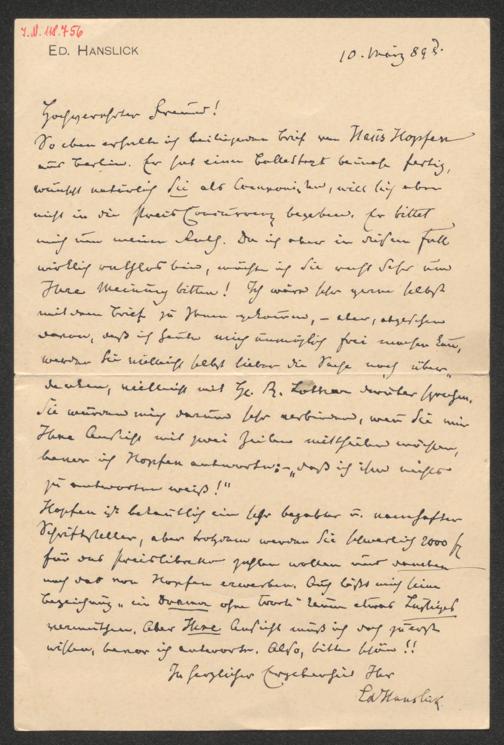 I.N. 118.756
ED. HANSLICK
10. März 89
Hochverehrter Freund!
So eben erhalte ich beiliegenden Brief von Hans Hopfen
aus Berlin. Er hat einen Ballettext beinahe fertig,
wünscht natürlich Sie als Componisten, will sich aber
nicht in die Preis Concurrenz begeben. Er bittet
mich um meinen Rath. Da ich aber in diesem Fall
wirklich rathlos bin, möchte ich Sie recht sehr um
Ihre Meinung bitten! Ich wäre sehr gerne selbst
mit dem Brief zu Ihnen gekommen, – aber, abgesehen
davon, daß ich heute mich unmöglich frei machen kann,
werden Sie vielleicht selbst lieber die Sache noch über-
denken, vielleicht mit darüber sprechen.
Sie würden mich darum sehr verbinden, wenn Sie mir
Ihre Ansicht mit zwei Zeilen mittheilen möchten,
bevor ich Hopfen antworte: – „daß ich ihm nichts
zu antworten weiß!"
Hopfen ist bekanntlich ein sehr begabter u. namhafter
Schriftsteller, aber trotzdem werden Sie schwerlich 2000 fl
für das Preislibretto zahlen wollen und daneben
noch das von Hopfen erwerben. Auch läßt mich seine
Bezeichnung „ein Drama ohne Worte" kaum etwas Lustiges
vermuthen. Aber Ihre Ansicht muß ich doch zuerst
wissen, bevor ich antworte. Also, bitte schön!!
In herzlicher Ergebenheit Ihr
Ed Hanslick